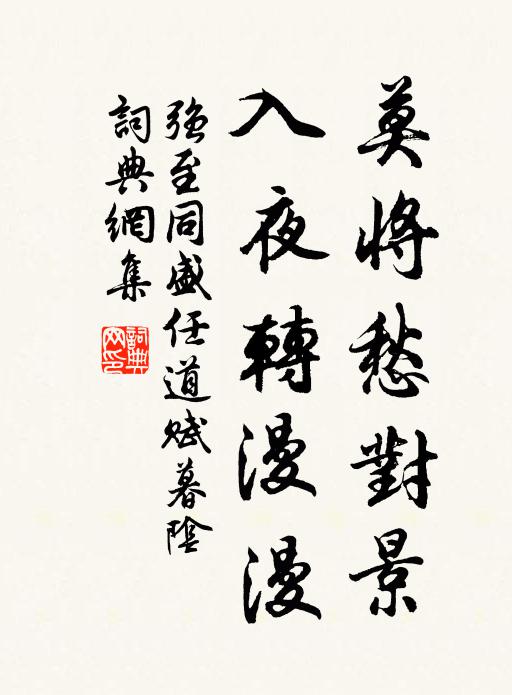 莫將愁對景
入夜轉漫漫
強至同盛任道賦暮陰
詞典網集
詞典網印